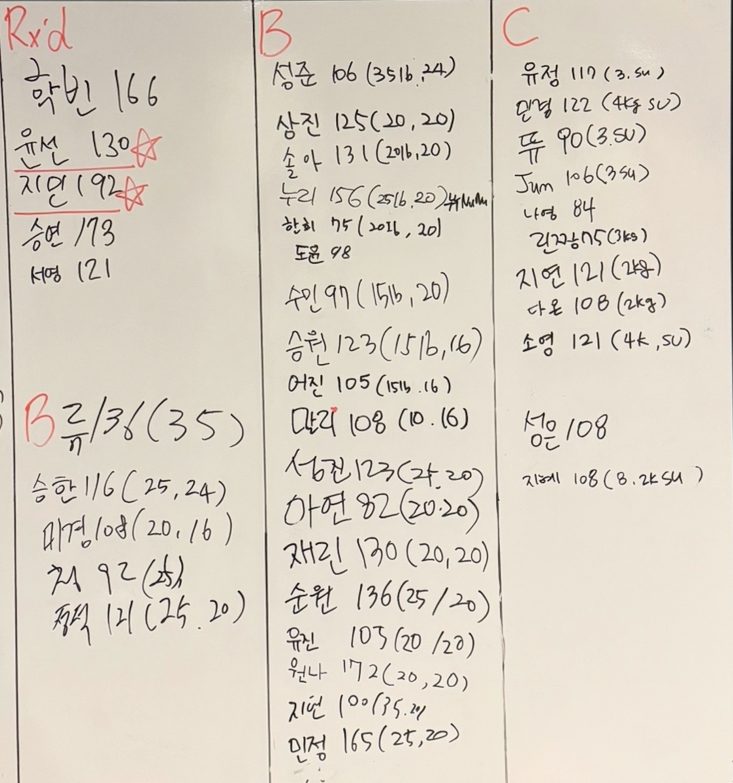 Rx'd
학빈 166
윤선 130
지연 192
승연 173
서영 121
B
류 136(35)
승한 116(25,24)
미경 108(20,16)
92
121(25.20)
B
성준 106(35lb,24)
상진 125(20,20)
솔아 131(20lb,20)
누리 156(25lb,20)
한희 75(20lb,20)
도윤 98
수민 97(15lb,20)
승원 123(15lb,16)
어진 105(15lb.16)
말리 108(10.16)
성진 123(25.20)
아연 82(20.20)
재린 130(20,20)
순완 136(25/20)
유진 105(20/20)
원나 172(20,20)
지현 100(35.20)
민정 165(25,20)
C
유정 117(3.su)
민경 122(4kg su)
쮸 90(3.SU)
Jum 106(3su)
나영 84
75(3kg)
지연 121(2kg)
다온 108(2kg)
소영 121(4k,SU)
성은 108
지혜 108(B.2kSU)